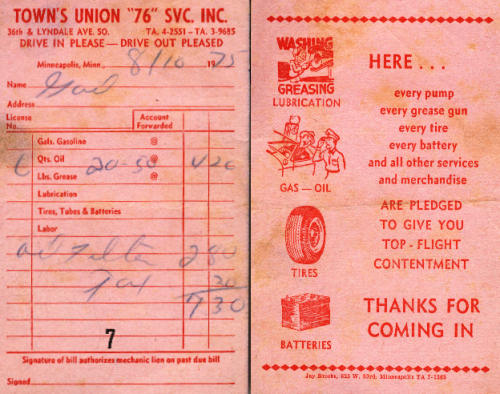 TOWN'S UNION "76" SVC. INC.
36th & LYNDALE AVE. SO. TA. 4-2551 - TA. 3-9685
DRIVE IN PLEASE — DRIVE OUT PLEASED
Minneapolis, Minn., 8/10 1975
Name
Address
License No. Account Forwarded
Gals. Gasoline @
6 Qts. Oil 20-50 @ 4 20
Lbs. Grease @
Lubrication
Tires, Tubes & Batteries
Labor
Oil Filter 2 80
Tax 30
7 30
7
Signature of bill authorizes mechanic lien on past due bill
Signed
WASHING
GREASING
LUBRICATION
GAS — OIL
TIRES
BATTERIES
HERE . . .
every pump
every grease gun
every tire
every battery
and all other services
and merchandise
ARE PLEDGED
TO GIVE YOU
TOP - FLIGHT
CONTENTMENT
THANKS FOR
COMING IN
Jay Brooks, 825 W. 53rd, Minneapolis TA 7-1365